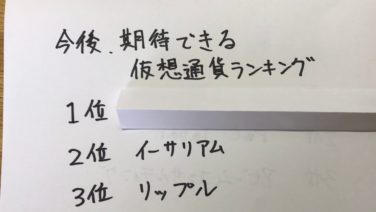 今後、期待できる
仮想通貨ランキング
1位
2位 イーサリアム
3位 リップル